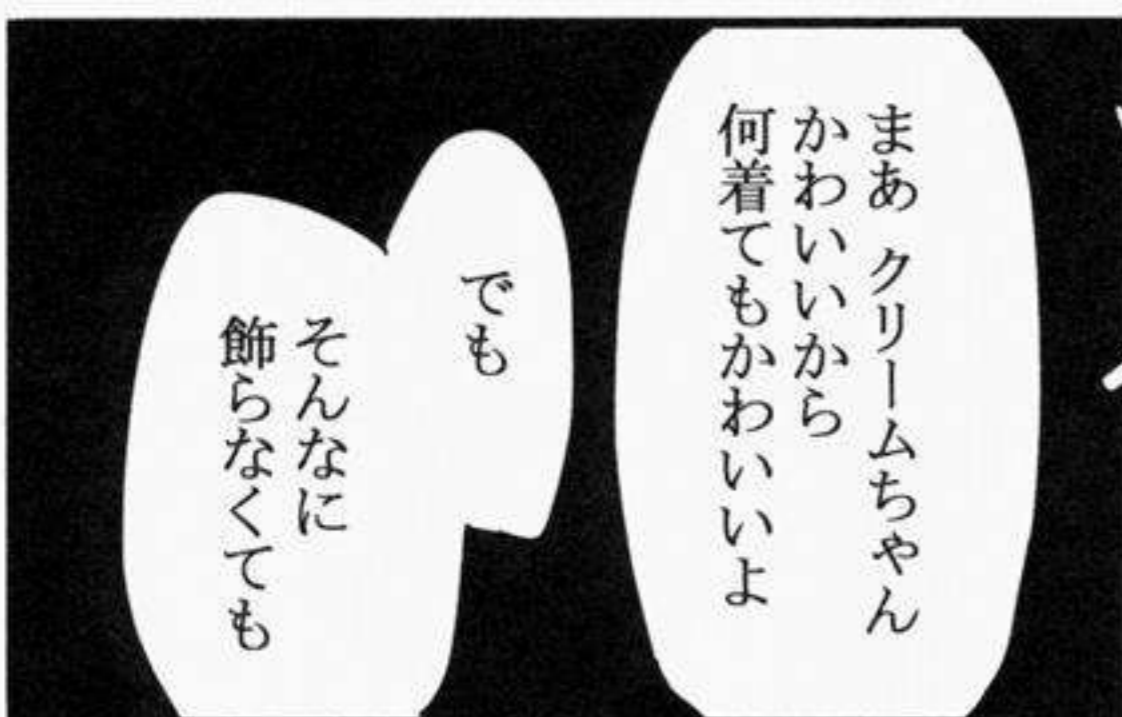 まあ クリームちゃん
かわいいから
何着てもかわいいよ
でも
そんなに
飾らなくても